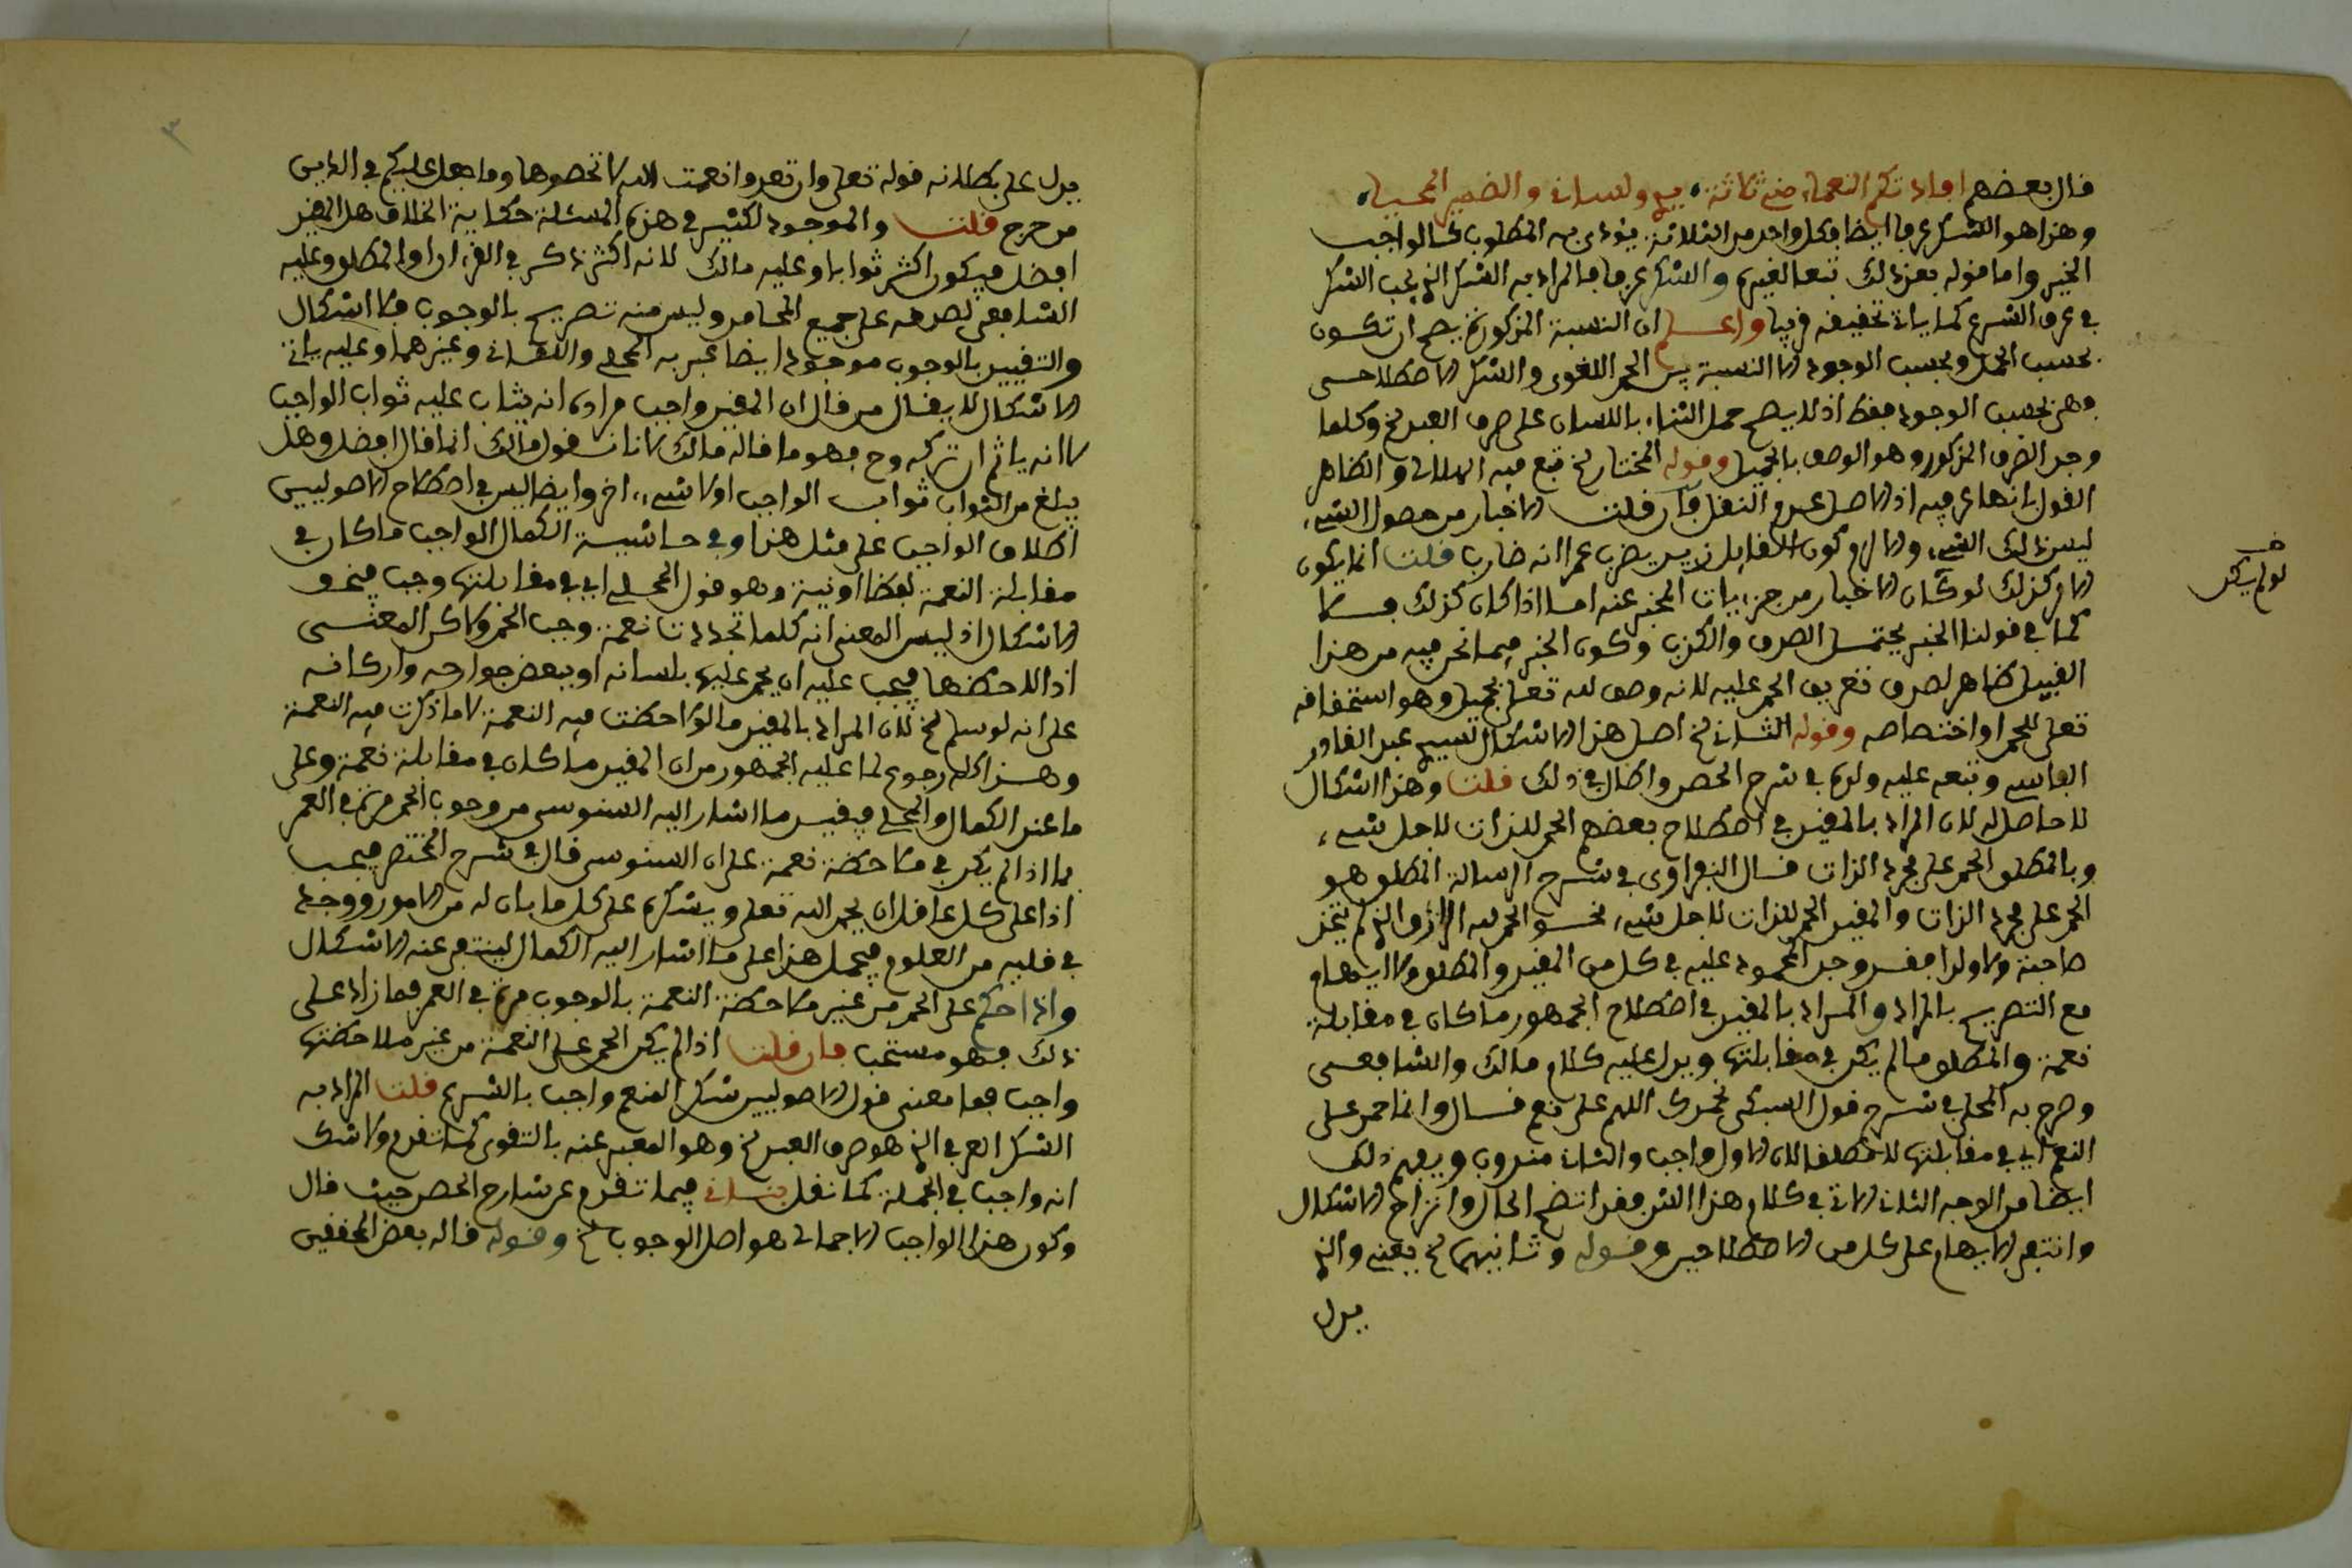 قال بعضهم افادتكم النعماء مني ثلاثة يدي ولساني والضمير المحجبا
وهذا هو الشكر عرفا ايضا فكل واحد من الثلاثة يؤدي به المطلوب كالواجب
المخير واما قوله بعد ذلك تبعا لغيره والشكر عرفا فالمراد به الشكر الذي يجب الشكر
في عرف الشرع كما ياتي تحقيقه قريبا واعلم ان النسبة المذكورة يصح ان تكون
بحسب الحمل وبحسب الوجود الا النسبة بين الحمد اللغوي والشكر الاصطلاحي
وهي بحسب الوجود فقط اذ لا يصح حمل الثناء باللسان على صرف العبد الخ وكلما
وجد الصرف المذكور وهو الوصف بالجميل وقوله المختار الخ تبع فيه الهلالي والظاهر
القول بانها عرفية اذ الاصل عدم النقل فان قلت الاخبار من حصول الشيء
ليس ذلك الشيء والا لزم كون القايل زيد يضرب عمرا انه ضارب قلت انما يكون
الامر كذلك لو كان الاخبار من جزءيات المخبر عنه اما اذا كان كذلك فلا
كما في قولنا الخبر يحتمل الصدق والكذب وكون الخبر فيما نحن فيه من هذا
القبيل ظاهر لصدق تعريف الحمد عليه لانه وصف لله تعلى بجميل وهو استحقاقه
تعلى للحمد او اختصاصه وقوله الثاني الخ اصل هذا الاشكال لسيدي عبد القادر
الفاسي وتبعه عليه ولده في شرح الحصن واطال في ذلك قلت وهذا اشكال
لا حاصل له لان المراد بالمقيد في اصطلاح بعضهم الحمد للذات لاجل شيء
وبالمطلق الحمد على مجرد الذات قال النفراوي في شرح الرسالة المطلق هو
الحمد على مجرد الذات والمقيد الحمد للذات لاجل شيء نحو الحمد لله الرازق الذي لم يتخذ
صاحبة ولا ولدا فقد وجد المحمود عليه في كل من المقيد والمطلق ولا ايهام
مع التصريح بالمراد والمراد بالمقيد في اصطلاح الجمهور ما كان في مقابلة
نعمة والمطلق ما لم يكن في مقابلتها ويدل عليه كلام مالك والشافعي
وصرح به المحلي في شرح قول السبكي نحمدك اللهم على نعم قال وانما حمد على
النعم اي في مقابلتها لا مطلقا لان الاول واجب والثاني مندوب ويفهم ذلك
ايضا من الوجه الثاني الاتي في كلام هذا الش فقد اتضح الحال وانزاح الاشكال
وانتفى الايهام على كل من الاصطلاحين وقوله وثانيهما الخ يعني والذي
يدل
لو لم يكن
٣
يدل على بطلانه قوله تعلى وان تعدوا نعمت الله لا تحصوها وما جعل عليكم في الدين
من حرج قلت والموجود لكثير في هذه المسئلة حكاية الخلاف هل المقيد
افضل فيكون اكثر ثوابا وعليه مالك لانه اكثر ذكر في القرءان او المطلق وعليه
الشافعي لصدقه على جميع المحامد وليس منه تصريح بالوجوب فلا اشكال
والتقييد بالوجوب موجود ايضا عبر به المحلي واللقاني وغيرهما وعليه ياتي
الاشكال لا يقال من قال ان المقيد واجب مراده انه يثاب عليه ثواب الواجب
لا انه ياثم ان تركه وح فهو ما قاله مالك لانا نقول مالك انما قال افضل وهل
يبلغ من الثواب ثواب الواجب او لا شيء اخر وايضا ليس في اصطلاح الاصوليين
اطلاق الواجب على مثل هذا وفي حاشية الكمال الواجب ما كان في
مقابلة النعمة لفظا او نية وهو قول المحلي اي في مقابلتها وجب فيقوى
الاشكال اذ ليس المعنى انه كلما تجددت نعمة وجب الحمد ولاكن المعنى
اذا لاحظها فيجب عليه ان يحمد عليها بلسانه او ببعض جوارحه واركانه
على انه لو سلم الخ لان المراد بالمقيد ما لوحظت فيه النعمة لا ما ذكرت فيه النعمة
وهذا كله رجوع لما عليه الجمهور من ان المقيد ما كان في مقابلة نعمة وعلى
ما عند الكمال والمحلي فيقيد ما اشار اليه السنوسي من وجوب الحمد مرة في العمر
بما اذا لم يكن في ملاحظة نعمة على ان السنوسي قال في شرح المختصر فيجب
اذا على كل عاقل ان يحمد الله تعلى ويشكره على كل ما بان له من الامور ووجد
في قلبه من العلوم فيحمل هذا على ما اشار اليه الكمال لينتفي عنه الاشكال
واذا حكم على الحمد من غير ملاحظة النعمة بالوجوب مرة في العمر فما زاد على
ذلك فهو مستحب فان قلت اذا لم يكن الحمد على النعمة من غير ملاحظتها
واجب فما معنى قول الاصوليين شكر المنعم واجب بالشرع قلت المراد به
الشكر العرفي الذي هو صرف العبد الخ وهو المعبر عنه بالتقوى كما تقدم ولا شك
انه واجب في الجملة كما نقل بناني فيما تقدم عن شارح الحصن حيث قال
وكون هذا الواجب الاجمالي هو اصل الوجوب الخ وقوله قاله بعض المحققين